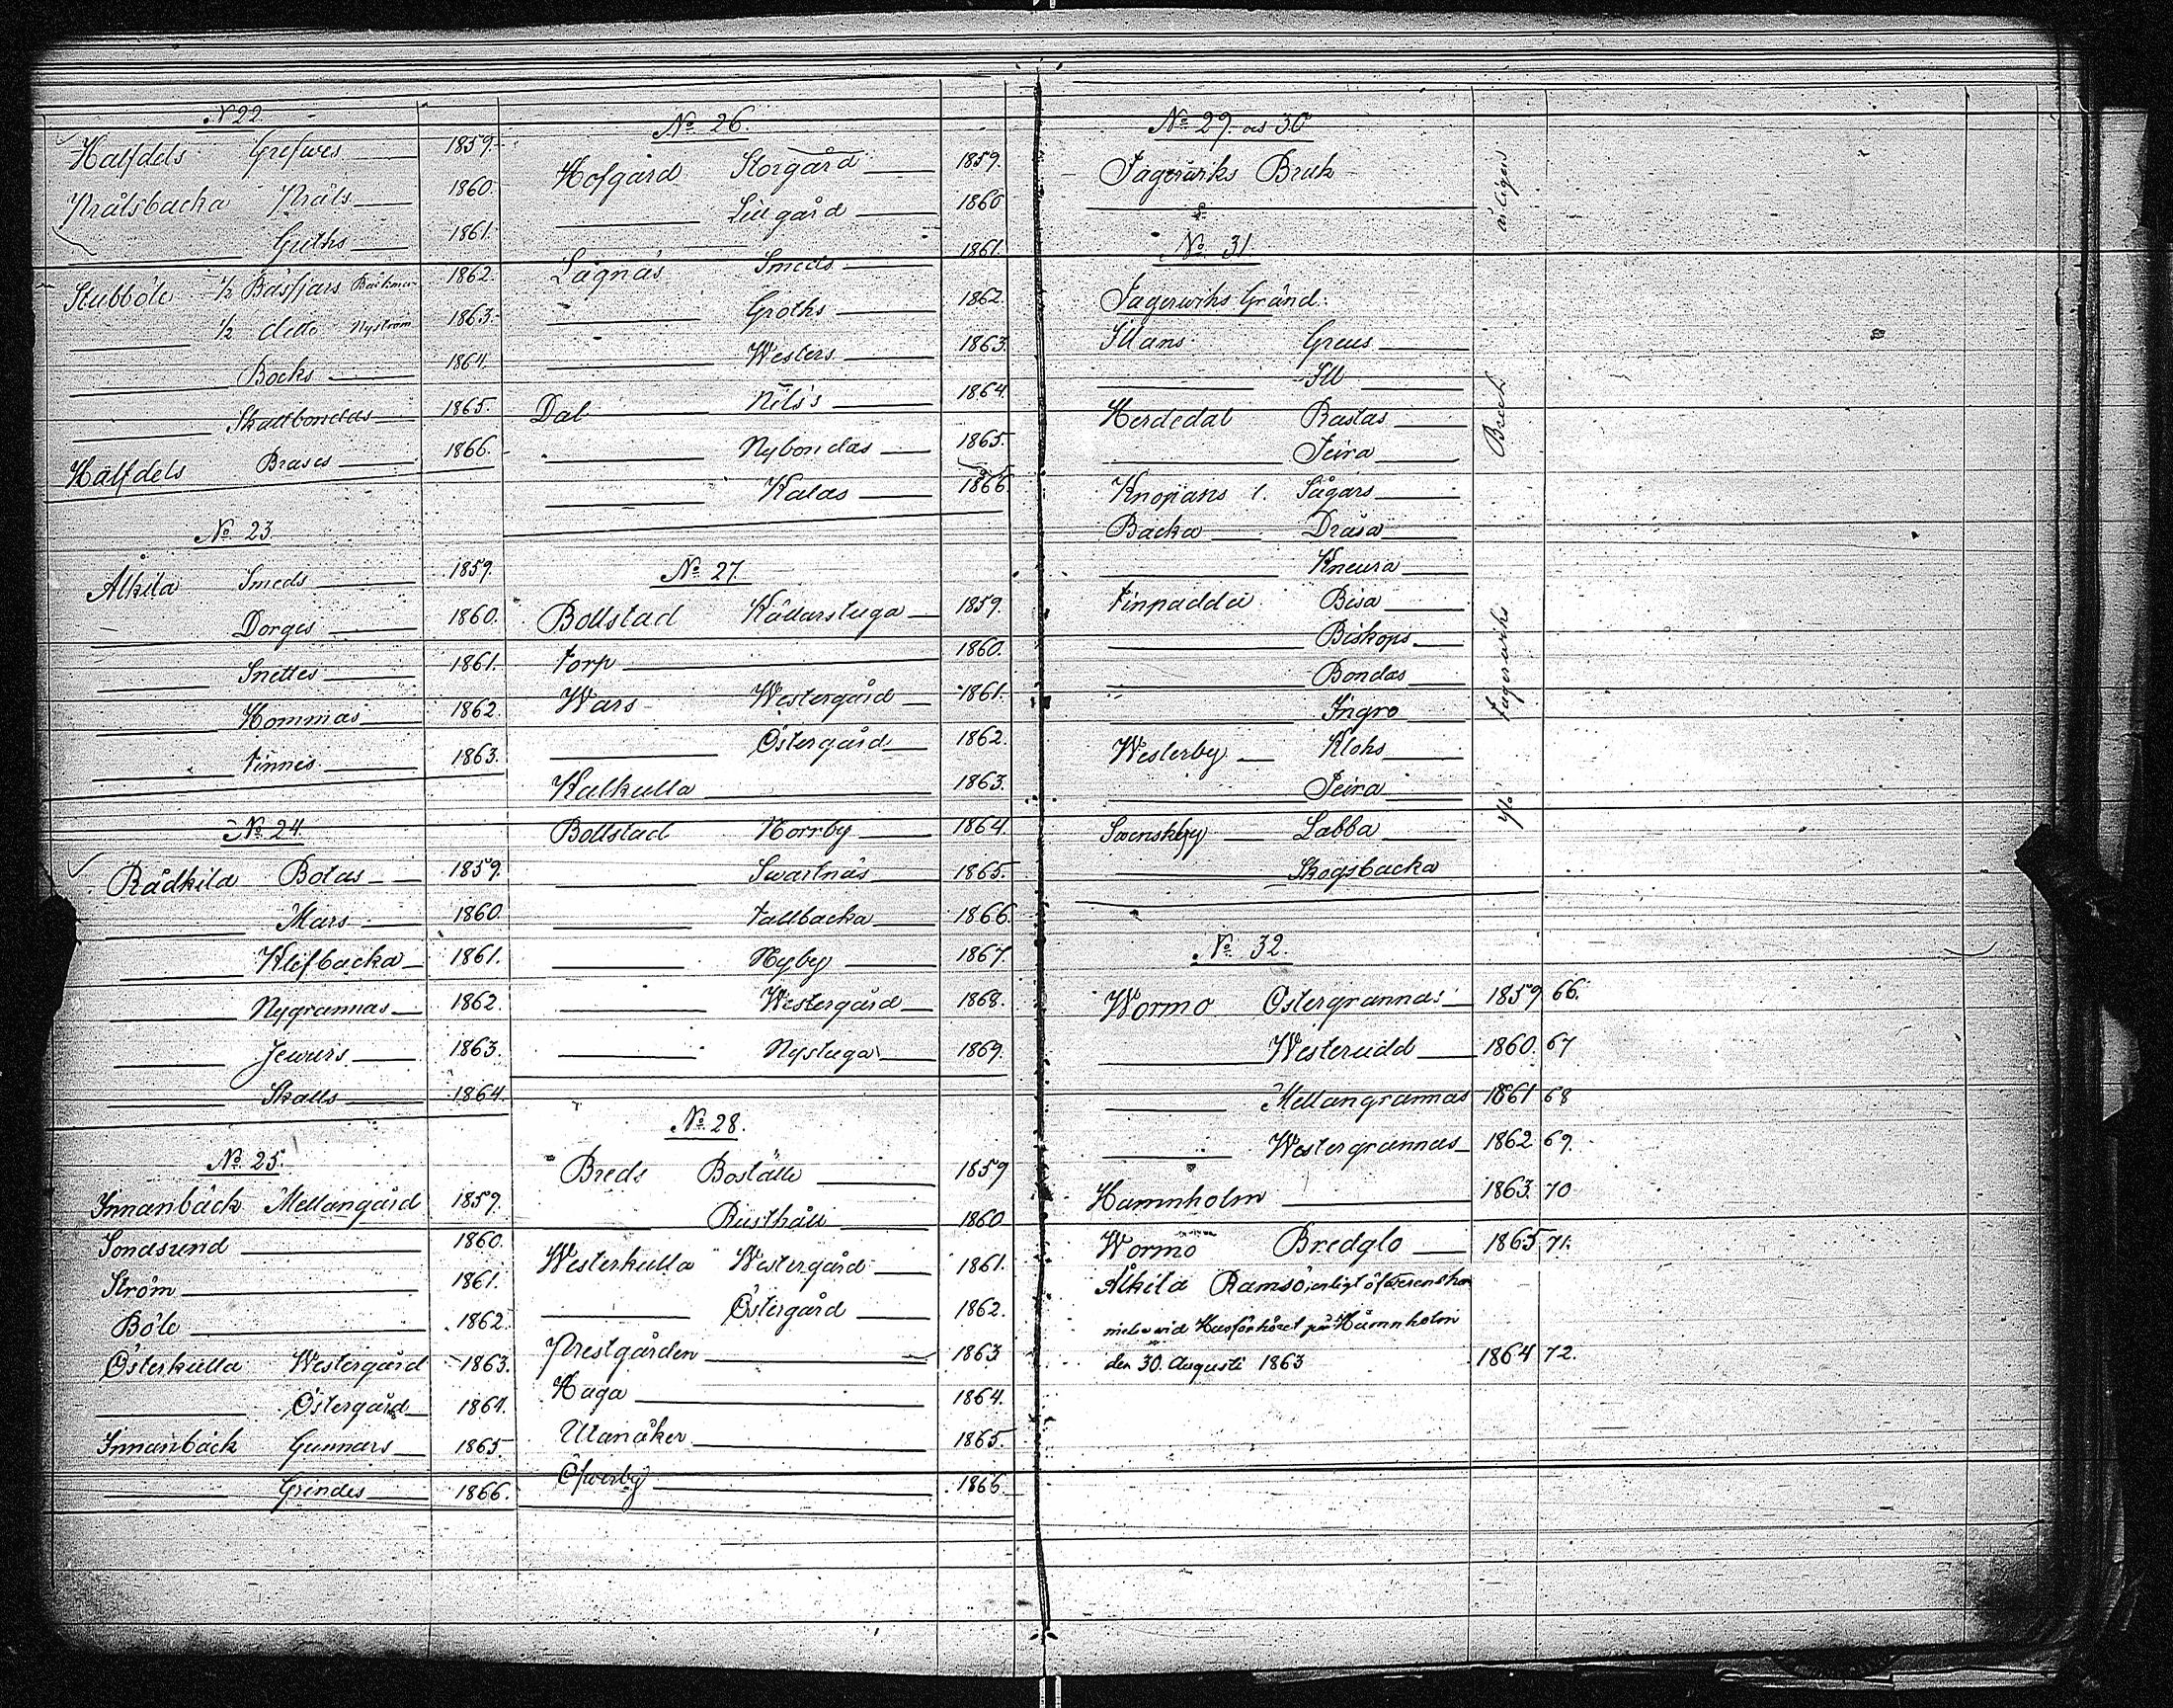 N 22
Halfdels Grefves 1859.
Prålsbacka Pråls 1860
Guths 1861.
Stubböle ½ Båsjjars Bäckman 1862.
½ ditto Nyström 1863.
Bocks 1864.
Skallbondas 1865.
Halfdels Brases 1866.
No 23.
Ålkila Smeds 1859.
Dorges 1860.
Snettes 1861.
Hommas 1862
Finnis 1863.
No 24.
Rådkila Botas 1859.
Mars 1860
Klefbacka 1861.
Nygrannas 1862.
Jewurs 1863.
Skalls 1864.
No 25.
Innanbäck Mellangård 1859.
Sondsund 1860.
Ström 1861.
Böle 1862.
Österkulla Westergård 1863.
Östergård 1864.
Innanbäck Gunnars 1865
Grindes 1866.
No 26.
Hofgård Storgård 1859.
Lillgård 1860
Lågnäs Smeds 1861.
Groths 1862.
Westers 1863.
Dal Nils's 1864.
Nybondas 1865.
Kalas 1866.
No 27.
Bollstad Källarstuga 1859.
Torp 1860.
Wars Westergård 1861.
Östergård 1862.
Kalkulla 1863.
Bollstad Norrby 1864.
Swartnäs 1865.
Tallbacka 1866.
Nyby 1867.
Westergård 1868.
Nystuga 1869.
No 28.
Breds Boställe 1859
Rusthåll 1860
Westerkulla Westergård 1861.
Östergård 1862.
Prestgården 1863
Haga 1864.
Utanåker 1865.
Öfverby 1866.
No 29. och 30
Fagerwiks Bruk
No 31
Fagerwiks Gränd.
Illans Greus
Ill
Herdedal Rastas
Jeira
Knopans l. Sågars
Backa Dråsa
Kneura
Finpadda Bisa
Biskops
Bondas
Ingro
Westerby Klohs
Jeira
Swenskby Labba
Skogsbacka
på Fagerwiks Bruk årligen
No 32.
Wormö Östergrannas 1859 66.
Westerudd 1860. 67
Mellangrannas 1861 68
Westergrannas 1862 69.
Hamnholm 1863. 70
Wormö Bredglo 1865 71.
Ålkila Ramsö, enligt öfverensko
melse vid Husförhöret på Hamnholm
den 30. Augusti 1863 1864 72.